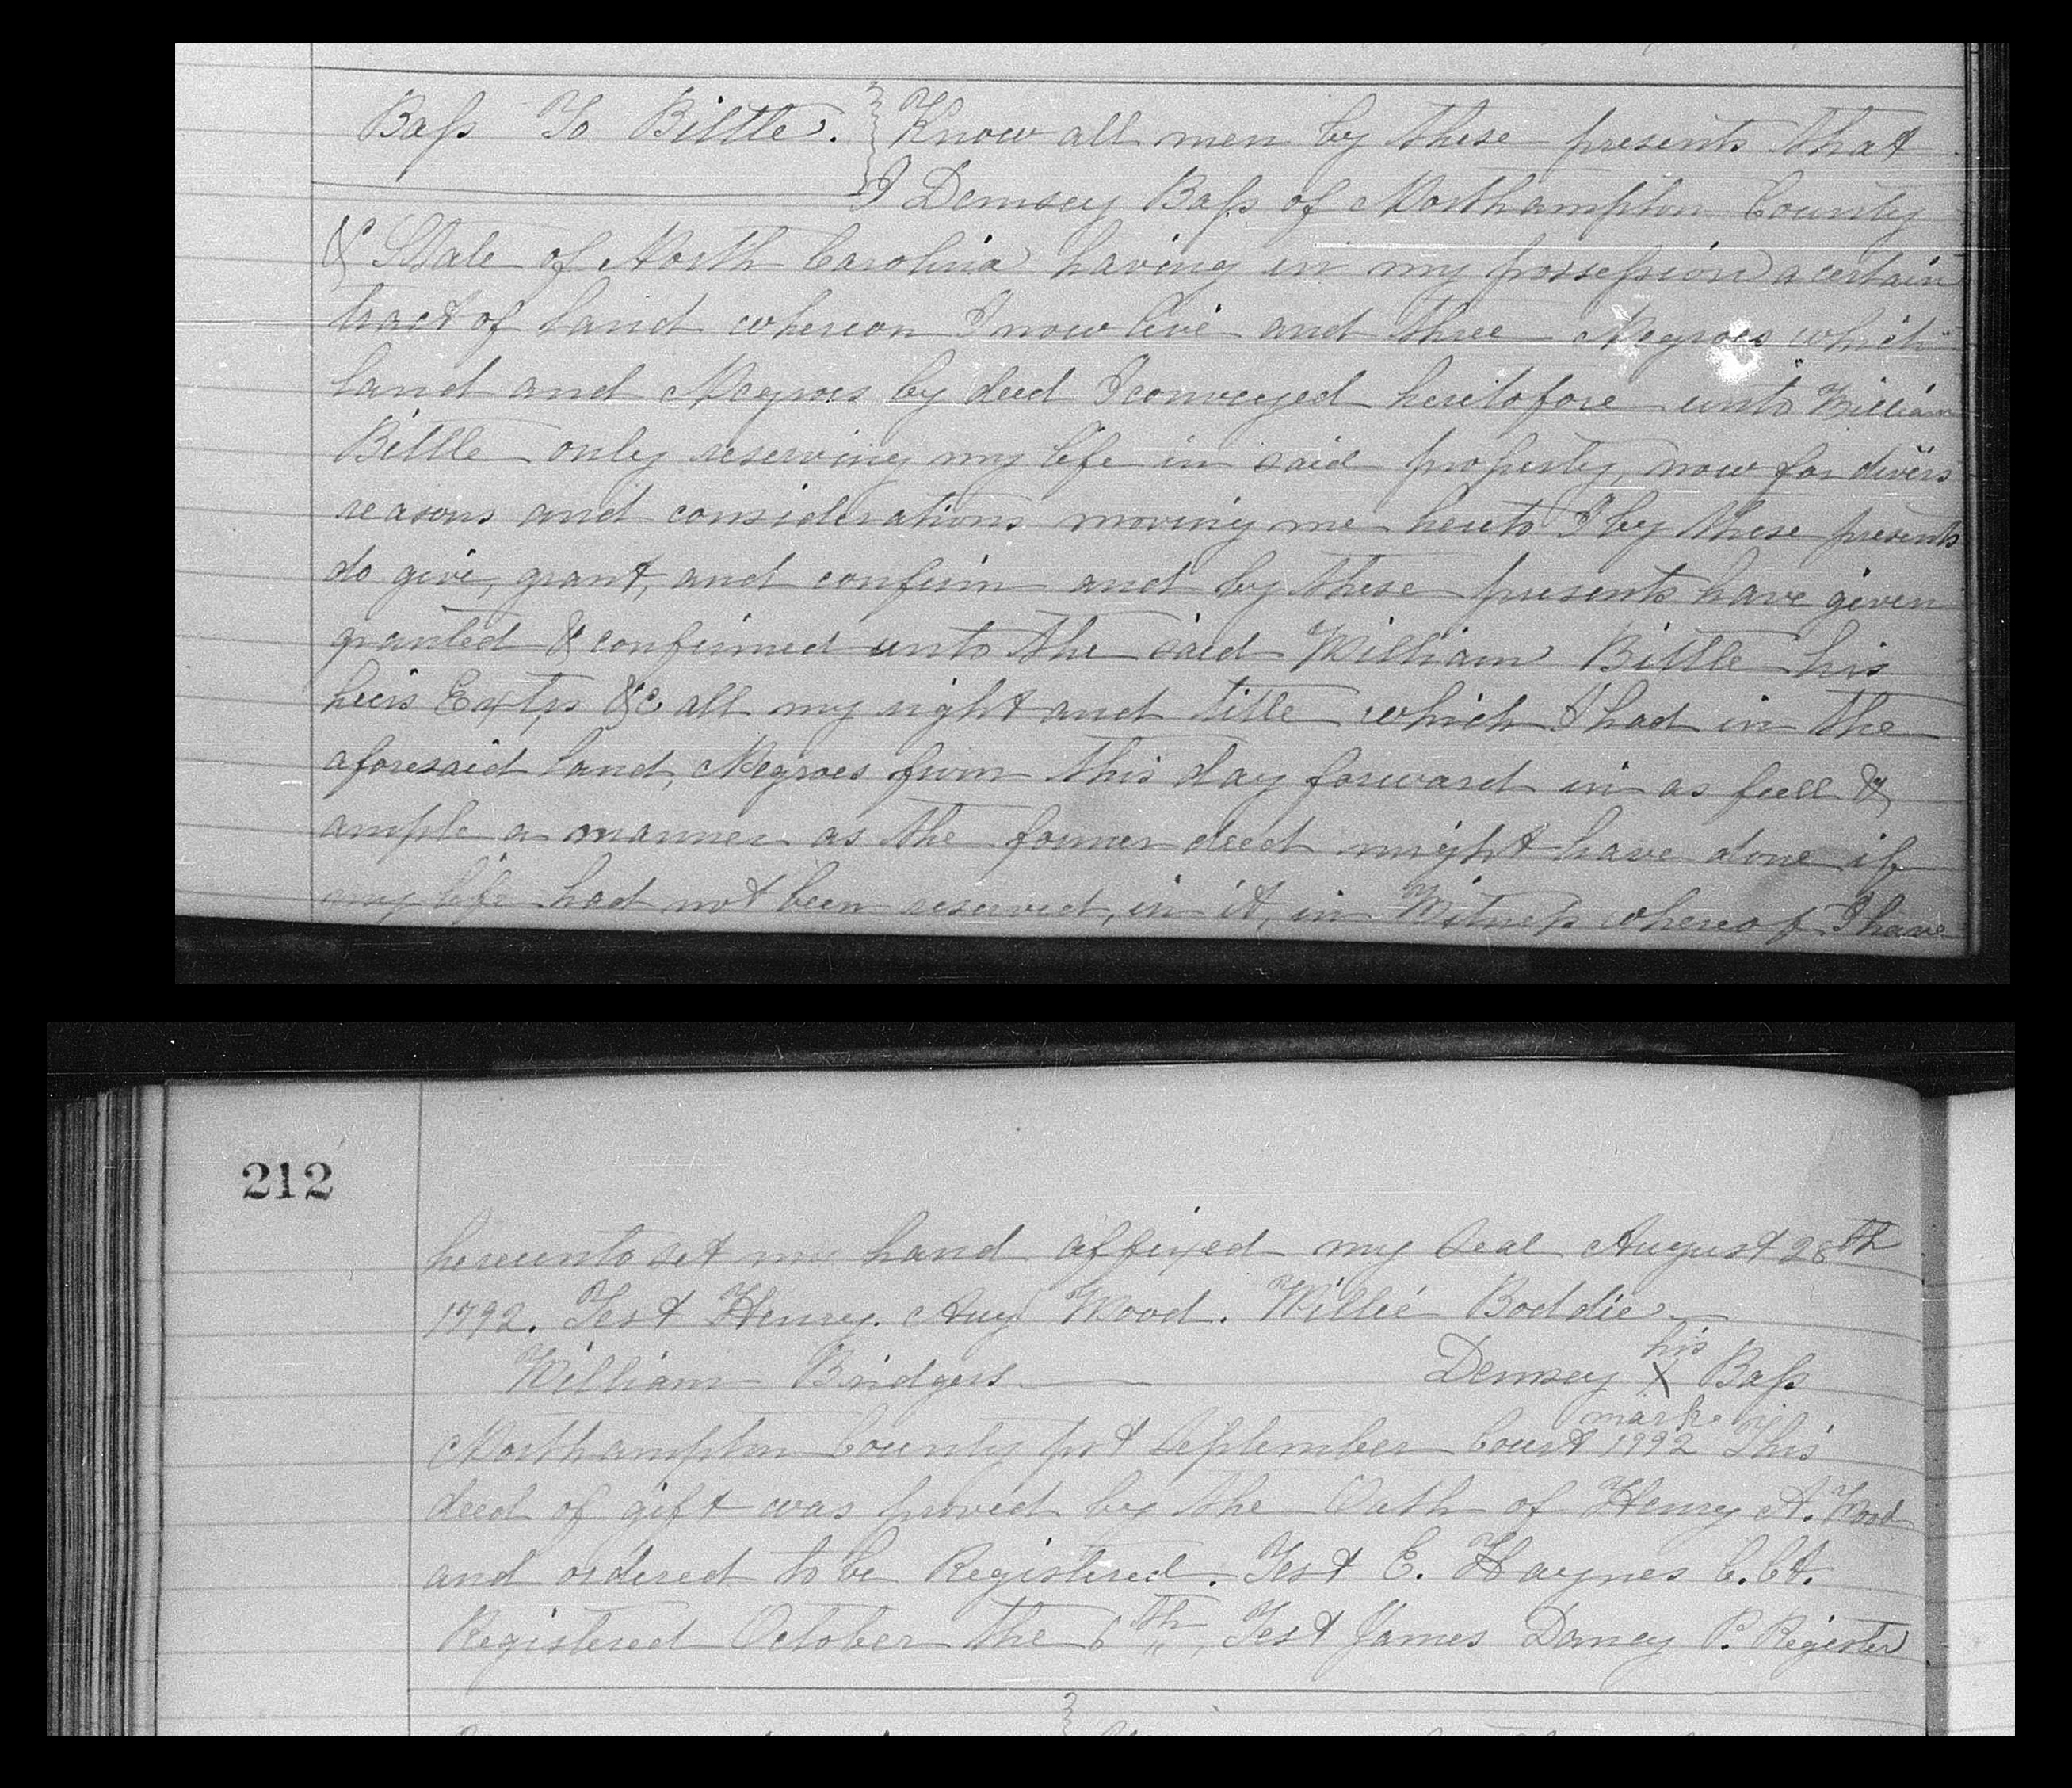 Bass To Bittle. Know all men by these presents that
I Demsey Bass of Northampton County
& State of North Carolina having in my possession a certain
tract of land whereon I now live and three Negroes which
land and Negroes by deed I conveyed heretofore unto William
Bittle only reserving my life in said property, now for divers
reasons and considerations moving me hereto I by these presents
do give, grant, and confirm and by these presents have given
granted & confirmed unto the said William Bittle his
heirs Extrs &c all my right and title which I had in the
aforesaid land, Negroes from this day forward in as full &
ample a manner as the former deed might have done if
my life had not been reserved, in it, in Witness whereof I have
212
hereunto set my hand affixed my Seal August 28th
1792. Test Henry. Aug Wood. Willie Boddie
his
William Bridgers Demsey X Bass
mark
Northampton County pst September Court 1792 This
deed of gift was proved by the Oath of Henry A. Wood
and ordered to be Registered. Test E. Haynes C.Ct.
Registered October the 6th, Test James Dancy P. Register